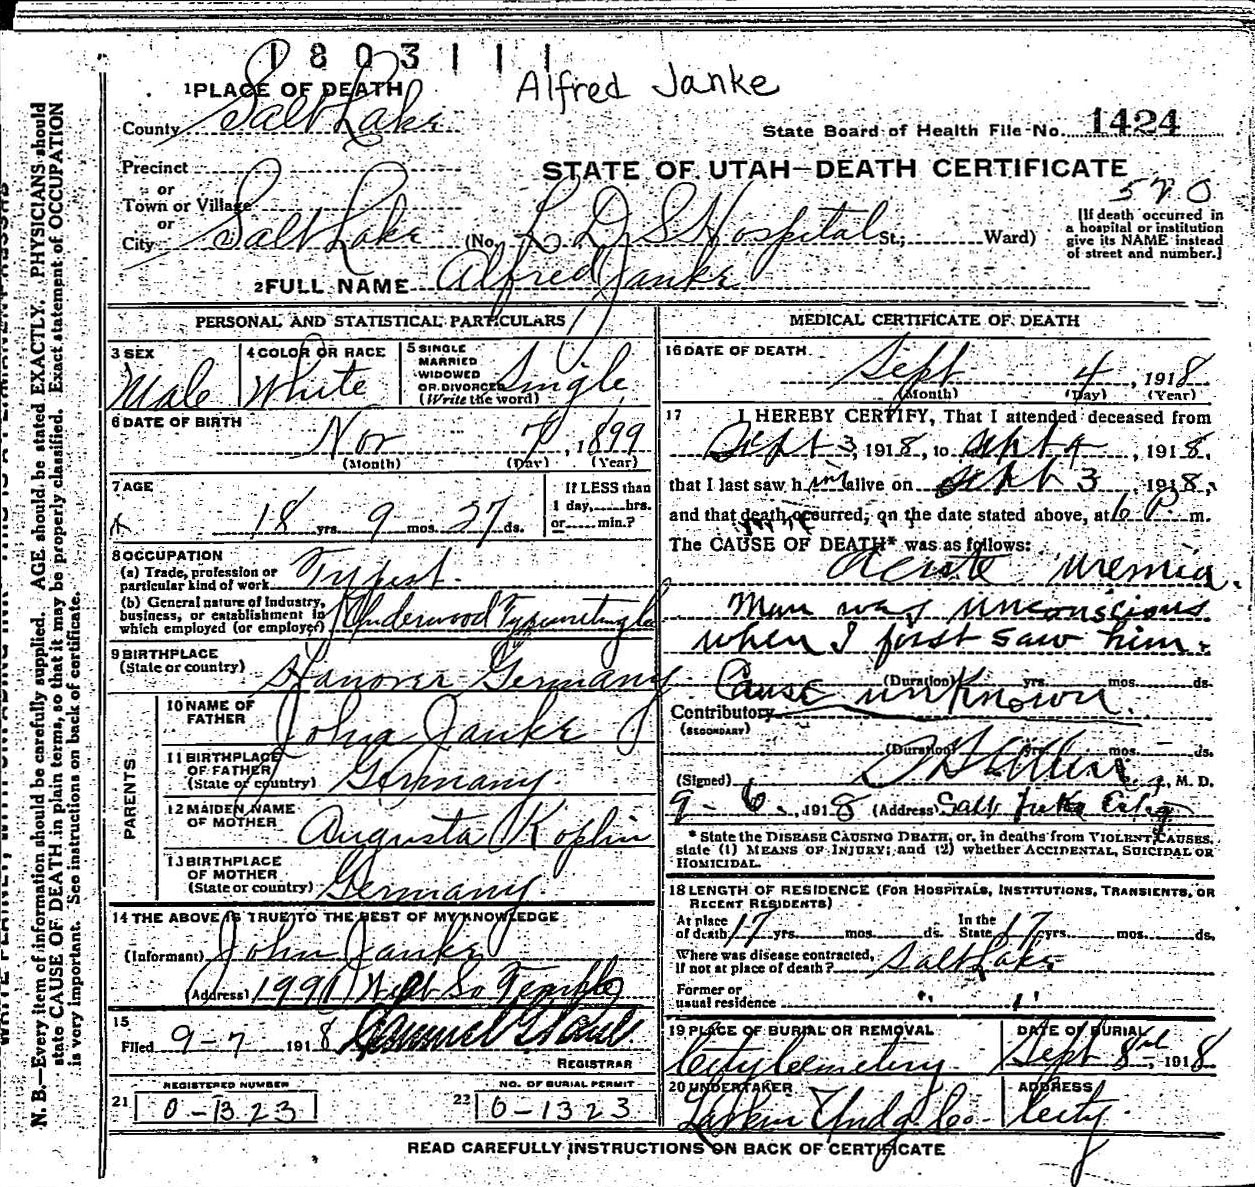 1803111
Alfred Janke
1 PLACE OF DEATH
County Salt Lake
State Board of Health File No. 1424
Precinct
STATE OF UTAH—DEATH CERTIFICATE
or
Town or Village
570
or
City Salt Lake (No. L. D. S Hospital St.; Ward)
[If death occurred in
a hospital or institution
give its NAME instead
of street and number.]
2 FULL NAME Alfred Janke
PERSONAL AND STATISTICAL PARTICULARS
3 SEX
Male
4 COLOR OR RACE
White
5 SINGLE
MARRIED
WIDOWED
OR DIVORCED Single
(Write the word)
6 DATE OF BIRTH
Nov 7, 1899
(Month) (Day) (Year)
7 AGE
18 yrs. 9 mos. 27 ds.
If LESS than
1 day, hrs.
or min.?
8 OCCUPATION
(a) Trade, profession or
particular kind of work Typist
(b) General nature of industry,
business, or establishment in
which employed (or employer) Underwood
9 BIRTHPLACE
(State or country) Hanover Germany
PARENTS
10 NAME OF
FATHER John Janke
11 BIRTHPLACE
OF FATHER
(State or country) Germany
12 MAIDEN NAME
OF MOTHER Augusta Koplin
13 BIRTHPLACE
OF MOTHER
(State or country) Germany.
14 THE ABOVE IS TRUE TO THE BEST OF MY KNOWLEDGE
(Informant) John Janke
(Address) So Temple
15
Filed 9-7 1918
REGISTRAR
REGISTERED NUMBER
21 0-1323
NO. OF BURIAL PERMIT
22 0-1323
MEDICAL CERTIFICATE OF DEATH
16 DATE OF DEATH
Sept 4, 1918
(Month) (Day) (Year)
17 I HEREBY CERTIFY, That I attended deceased from
Sept 3, 1918, to Sept 4, 1918,
that I last saw him alive on Sept 3 1918,
and that death occurred, on the date stated above, at 6 P m.
The CAUSE OF DEATH* was as follows:
Acute Uremia.
Man was unconscious
when I first saw him.
(Duration) yrs. mos. ds.
Cause unknown.
Contributory
(SECONDARY)
(Duration) yrs. mos. ds.
(Signed) M. D.
9-6, 1918 (Address) Salt Lake City
* State the DISEASE CAUSING DEATH, or, in deaths from VIOLENT CAUSES,
state (1) MEANS OF INJURY; and (2) whether ACCIDENTAL, SUICIDAL OR
HOMICIDAL.
18 LENGTH OF RESIDENCE (FOR HOSPITALS, INSTITUTIONS, TRANSIENTS, OR
RECENT RESIDENTS)
At place
of death 17 yrs. mos. ds.
In the
State 17 yrs. mos. ds.
Where was disease contracted,
If not at place of death? Salt Lake
Former or
usual residence " "
19 PLACE OF BURIAL OR REMOVAL
City Cemetery
DATE OF BURIAL
Sept 8, 1918
20 UNDERTAKER
Larkin Undg. Co.
ADDRESS
City.
READ CAREFULLY INSTRUCTIONS ON BACK OF CERTIFICATE
N. B.—Every item of information should be carefully supplied. AGE should be stated EXACTLY. PHYSICIANS should
state CAUSE OF DEATH in plain terms, so that it may be properly classified. Exact statement of OCCUPATION
is very important. See instructions on back of certificate.